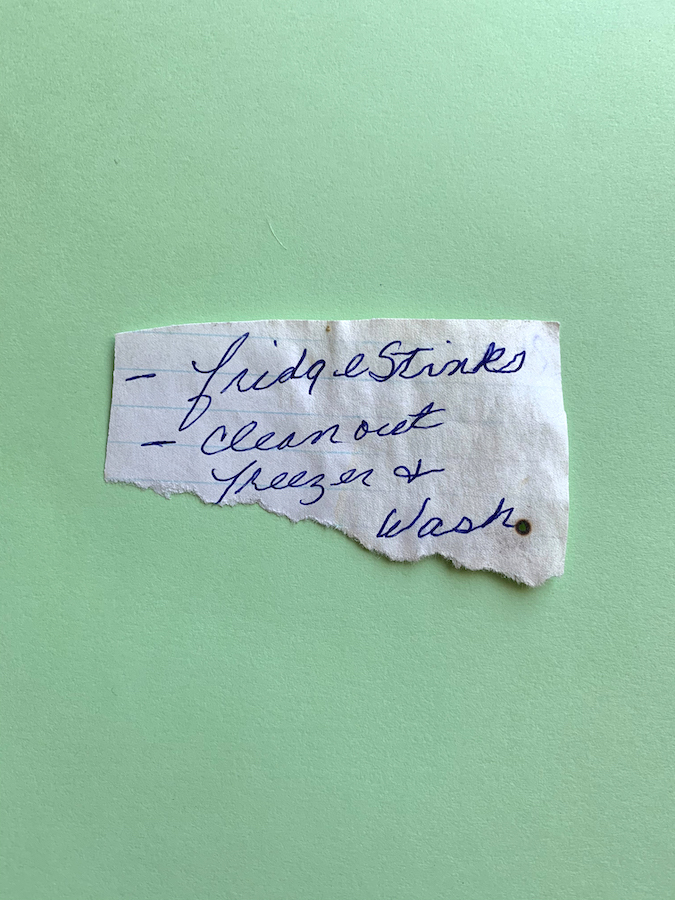 - fridge Stinks
- clean out
freezer &
Wash